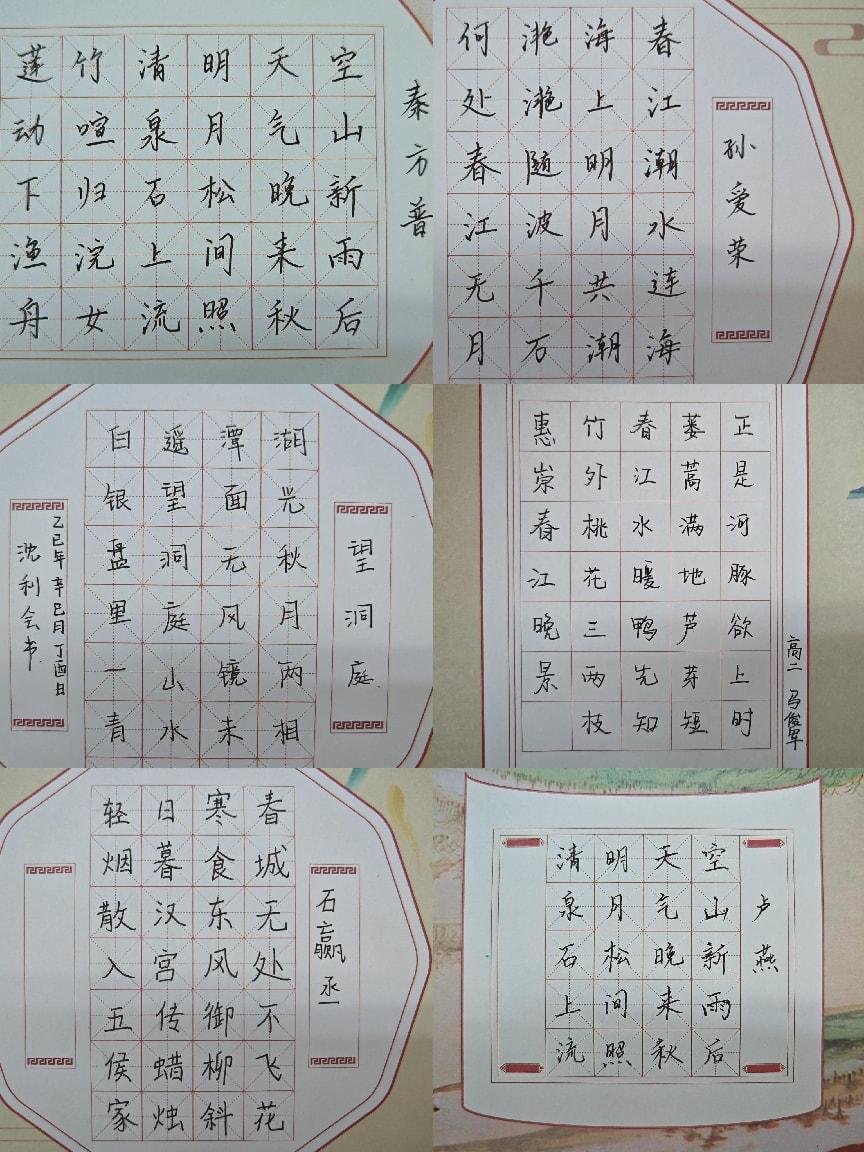 秦方普
空山新雨后
天气晚来秋
明月松间照
清泉石上流
竹喧归浣女
莲动下渔舟
孙爱荣
春江潮水连海
海上明月共潮
滟滟随波千万
何处春江无月
望洞庭
湖光秋月两相
潭面无风镜未
遥望洞庭山水
白银盘里一青
乙巳年辛巳月丁酉日
沈利会书
高二 马俊军
正是河豚欲上时
蒌蒿满地芦芽短
春江水暖鸭先知
竹外桃花三两枝
惠崇春江晚景
石赢丞
春城无处不飞花
寒食东风御柳斜
日暮汉宫传蜡烛
轻烟散入五侯家
卢燕
空山新雨后
天气晚来秋
明月松间照
清泉石上流